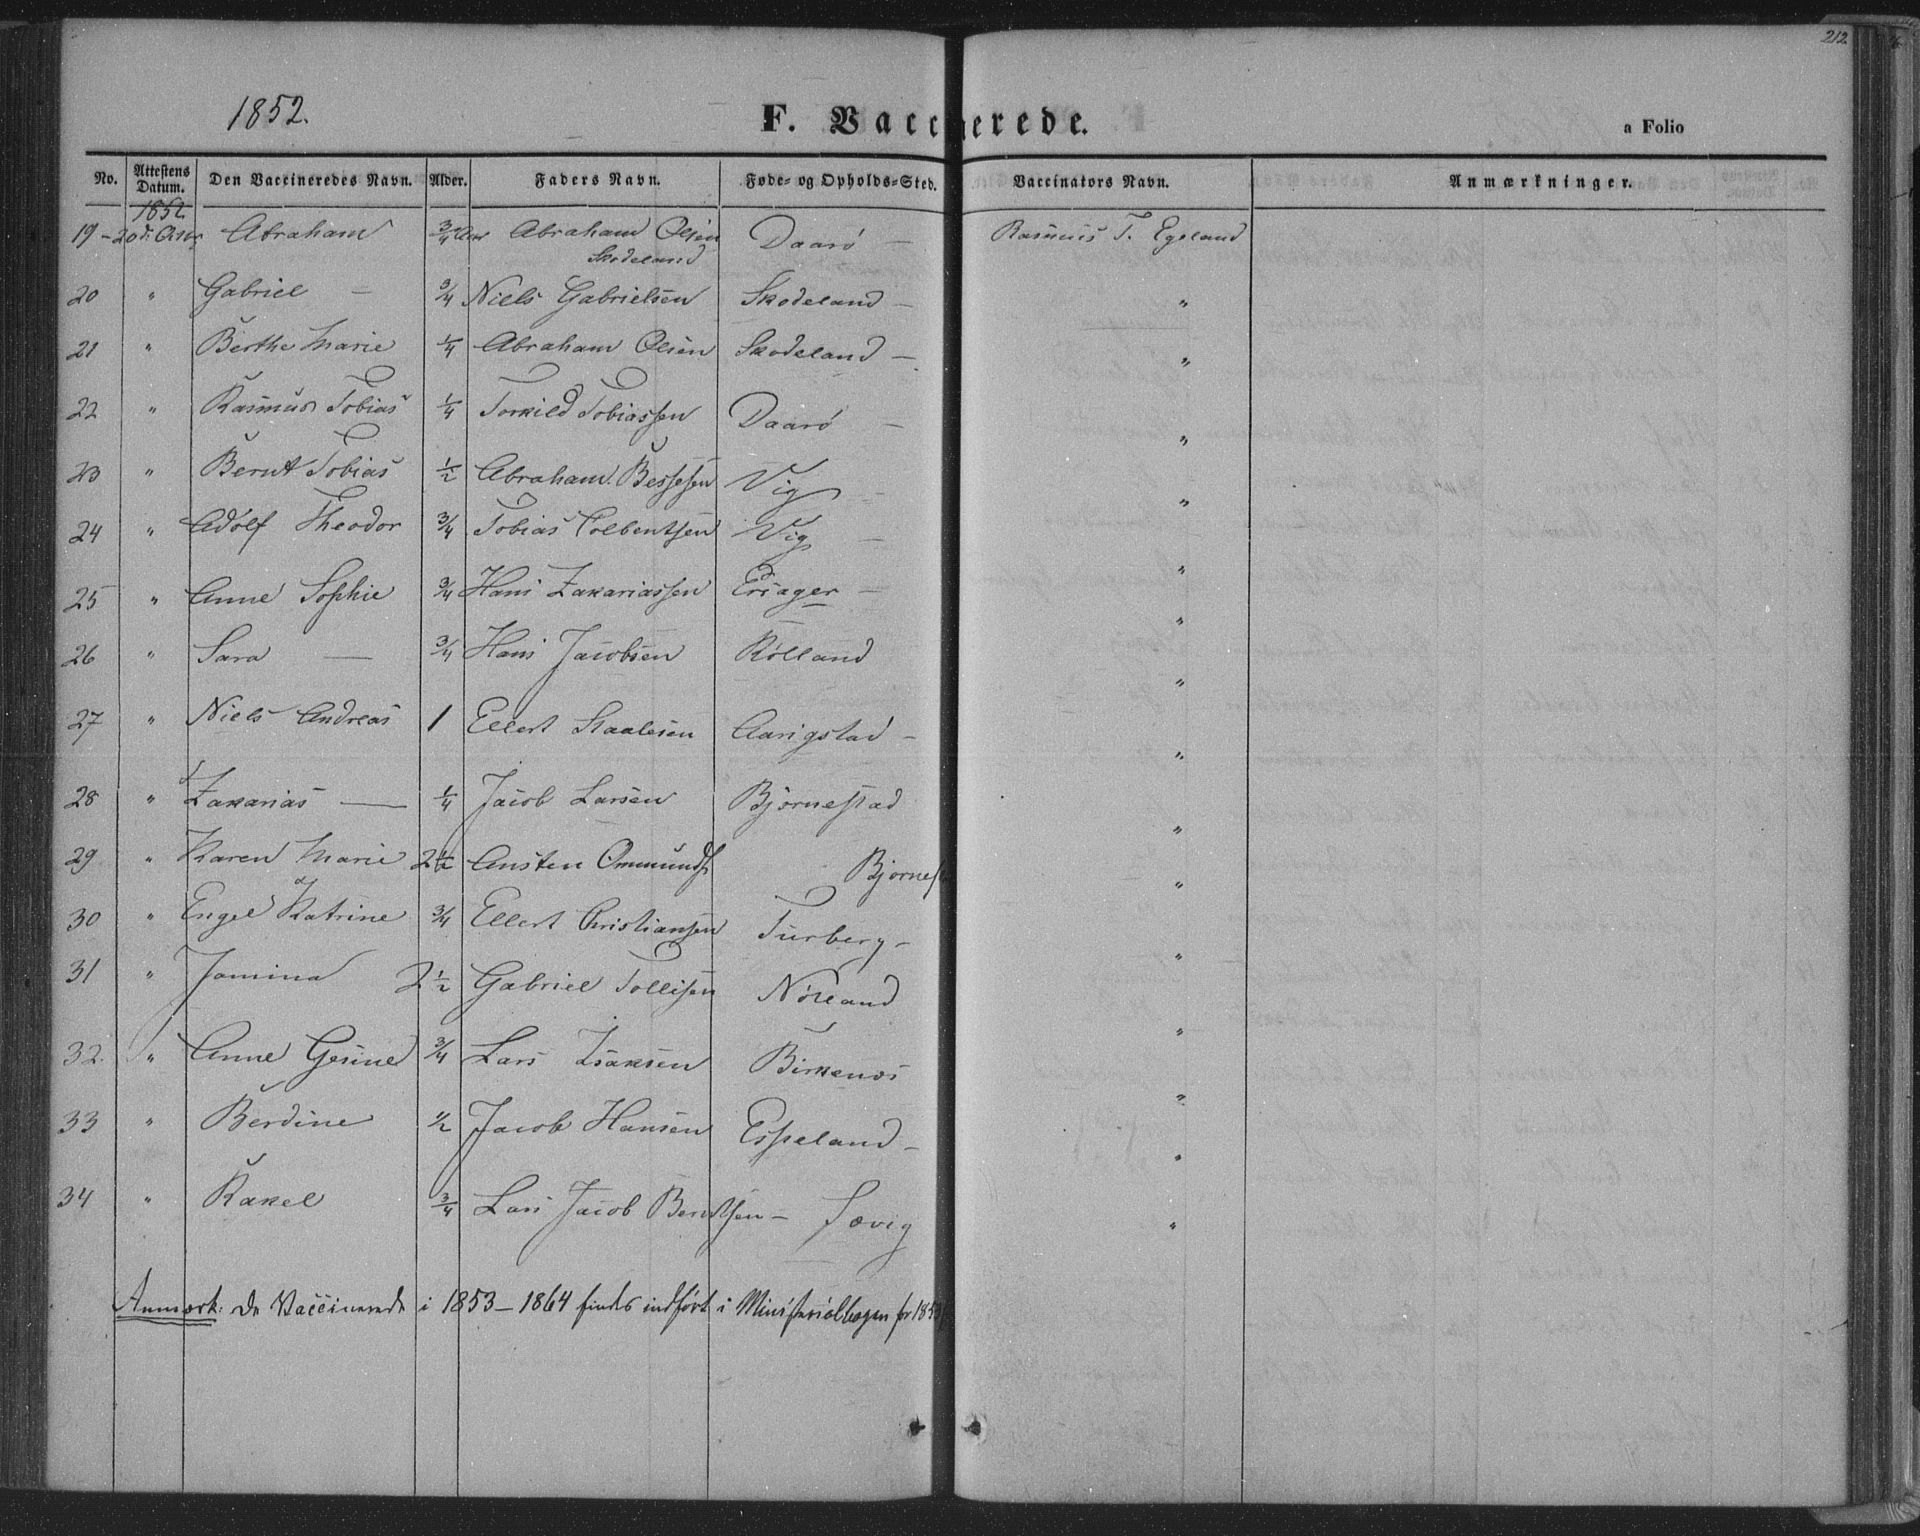 212
1852.
F. Vaccinerede.
a Folio
No. Attestens Datum. Den Vaccineredes Navn. Alder. Faders Navn. Føde- og Opholds-Sted. Vaccinators Navn. Anmærkninger.
1852
19 - 20 d: Abraham 3/4 Aar Abraham Olsen Skodeland Daarø — Rasmus T. Egeland
20 " Gabriel — 3/4 Niels Gabrielsen Skodeland — "
21 " Berthe Marie 1/4 Abraham Olsen Skodeland — "
22 " Rasmus Tobias 1/4 Torkild Tobiassen Daarø — "
23 " Bernt Tobias 1/2 Abraham Bessesen Vig — "
24 " Adolf Theodor 3/4 Tobias Colbentsen Vig — "
25 " Anne Sophie 3/4 Hans Zakariassen Eriager — "
26 " Sara — 3/4 Hans Jacobsen Rølland "
27 " Niels Andreas 1 Ellert Staalesen Aarigstad — "
28 " Zakarias — 1/4 Jacob Larsen Bjørnestad "
29 " Karen Marie 2 1/2 Ansten Ommunds Bjørnes "
30 " Engel Katrine 3/4 Ellert Christiansen Turberg — "
31 " Jamina 2 1/2 Gabriel Tollisen "
32. " Anne Gesine 3/4 Lars Isaksen Birkenæs "
33 " Berdine 1/2 Jacob Hansen Espeland — "
34 " Rakel 3/4 Lars Jacob Berntsen — Sævig "
Anmærk: De Vaccinerede i 1853 – 1864 findes indført i Ministerialbogen for 1853